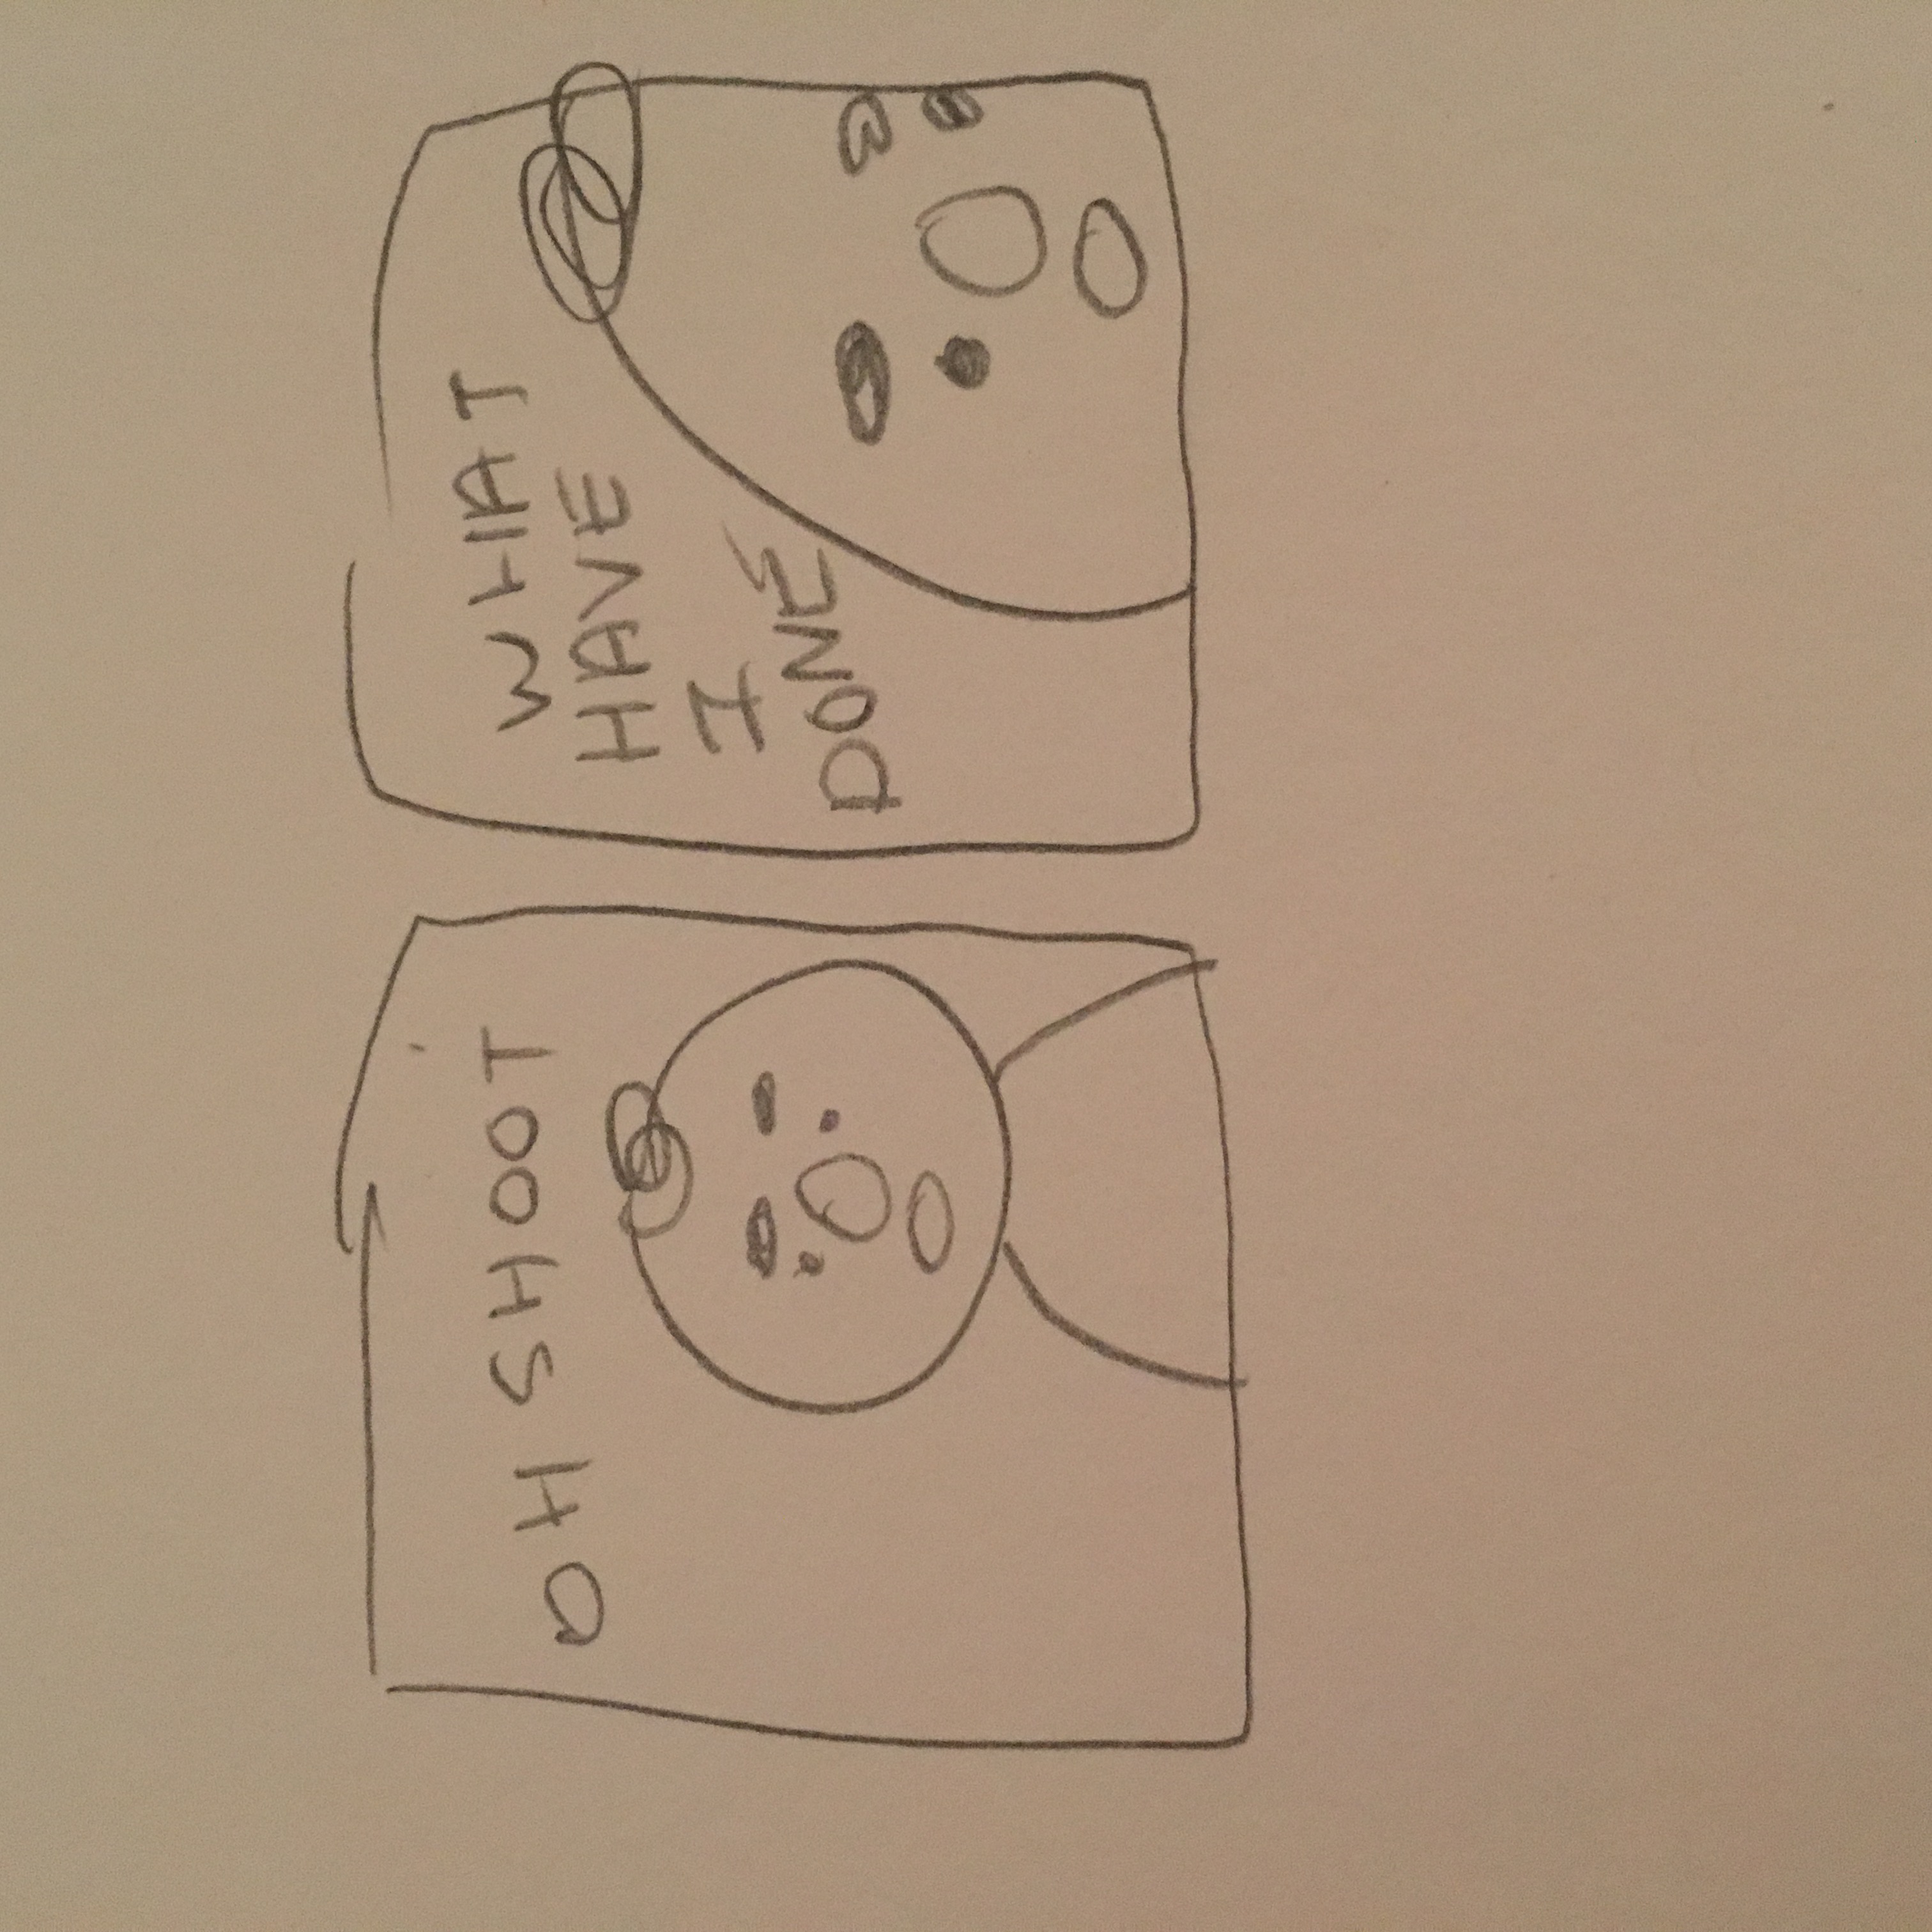 OH SHOOT
WHAT
HAVE
I
DONE